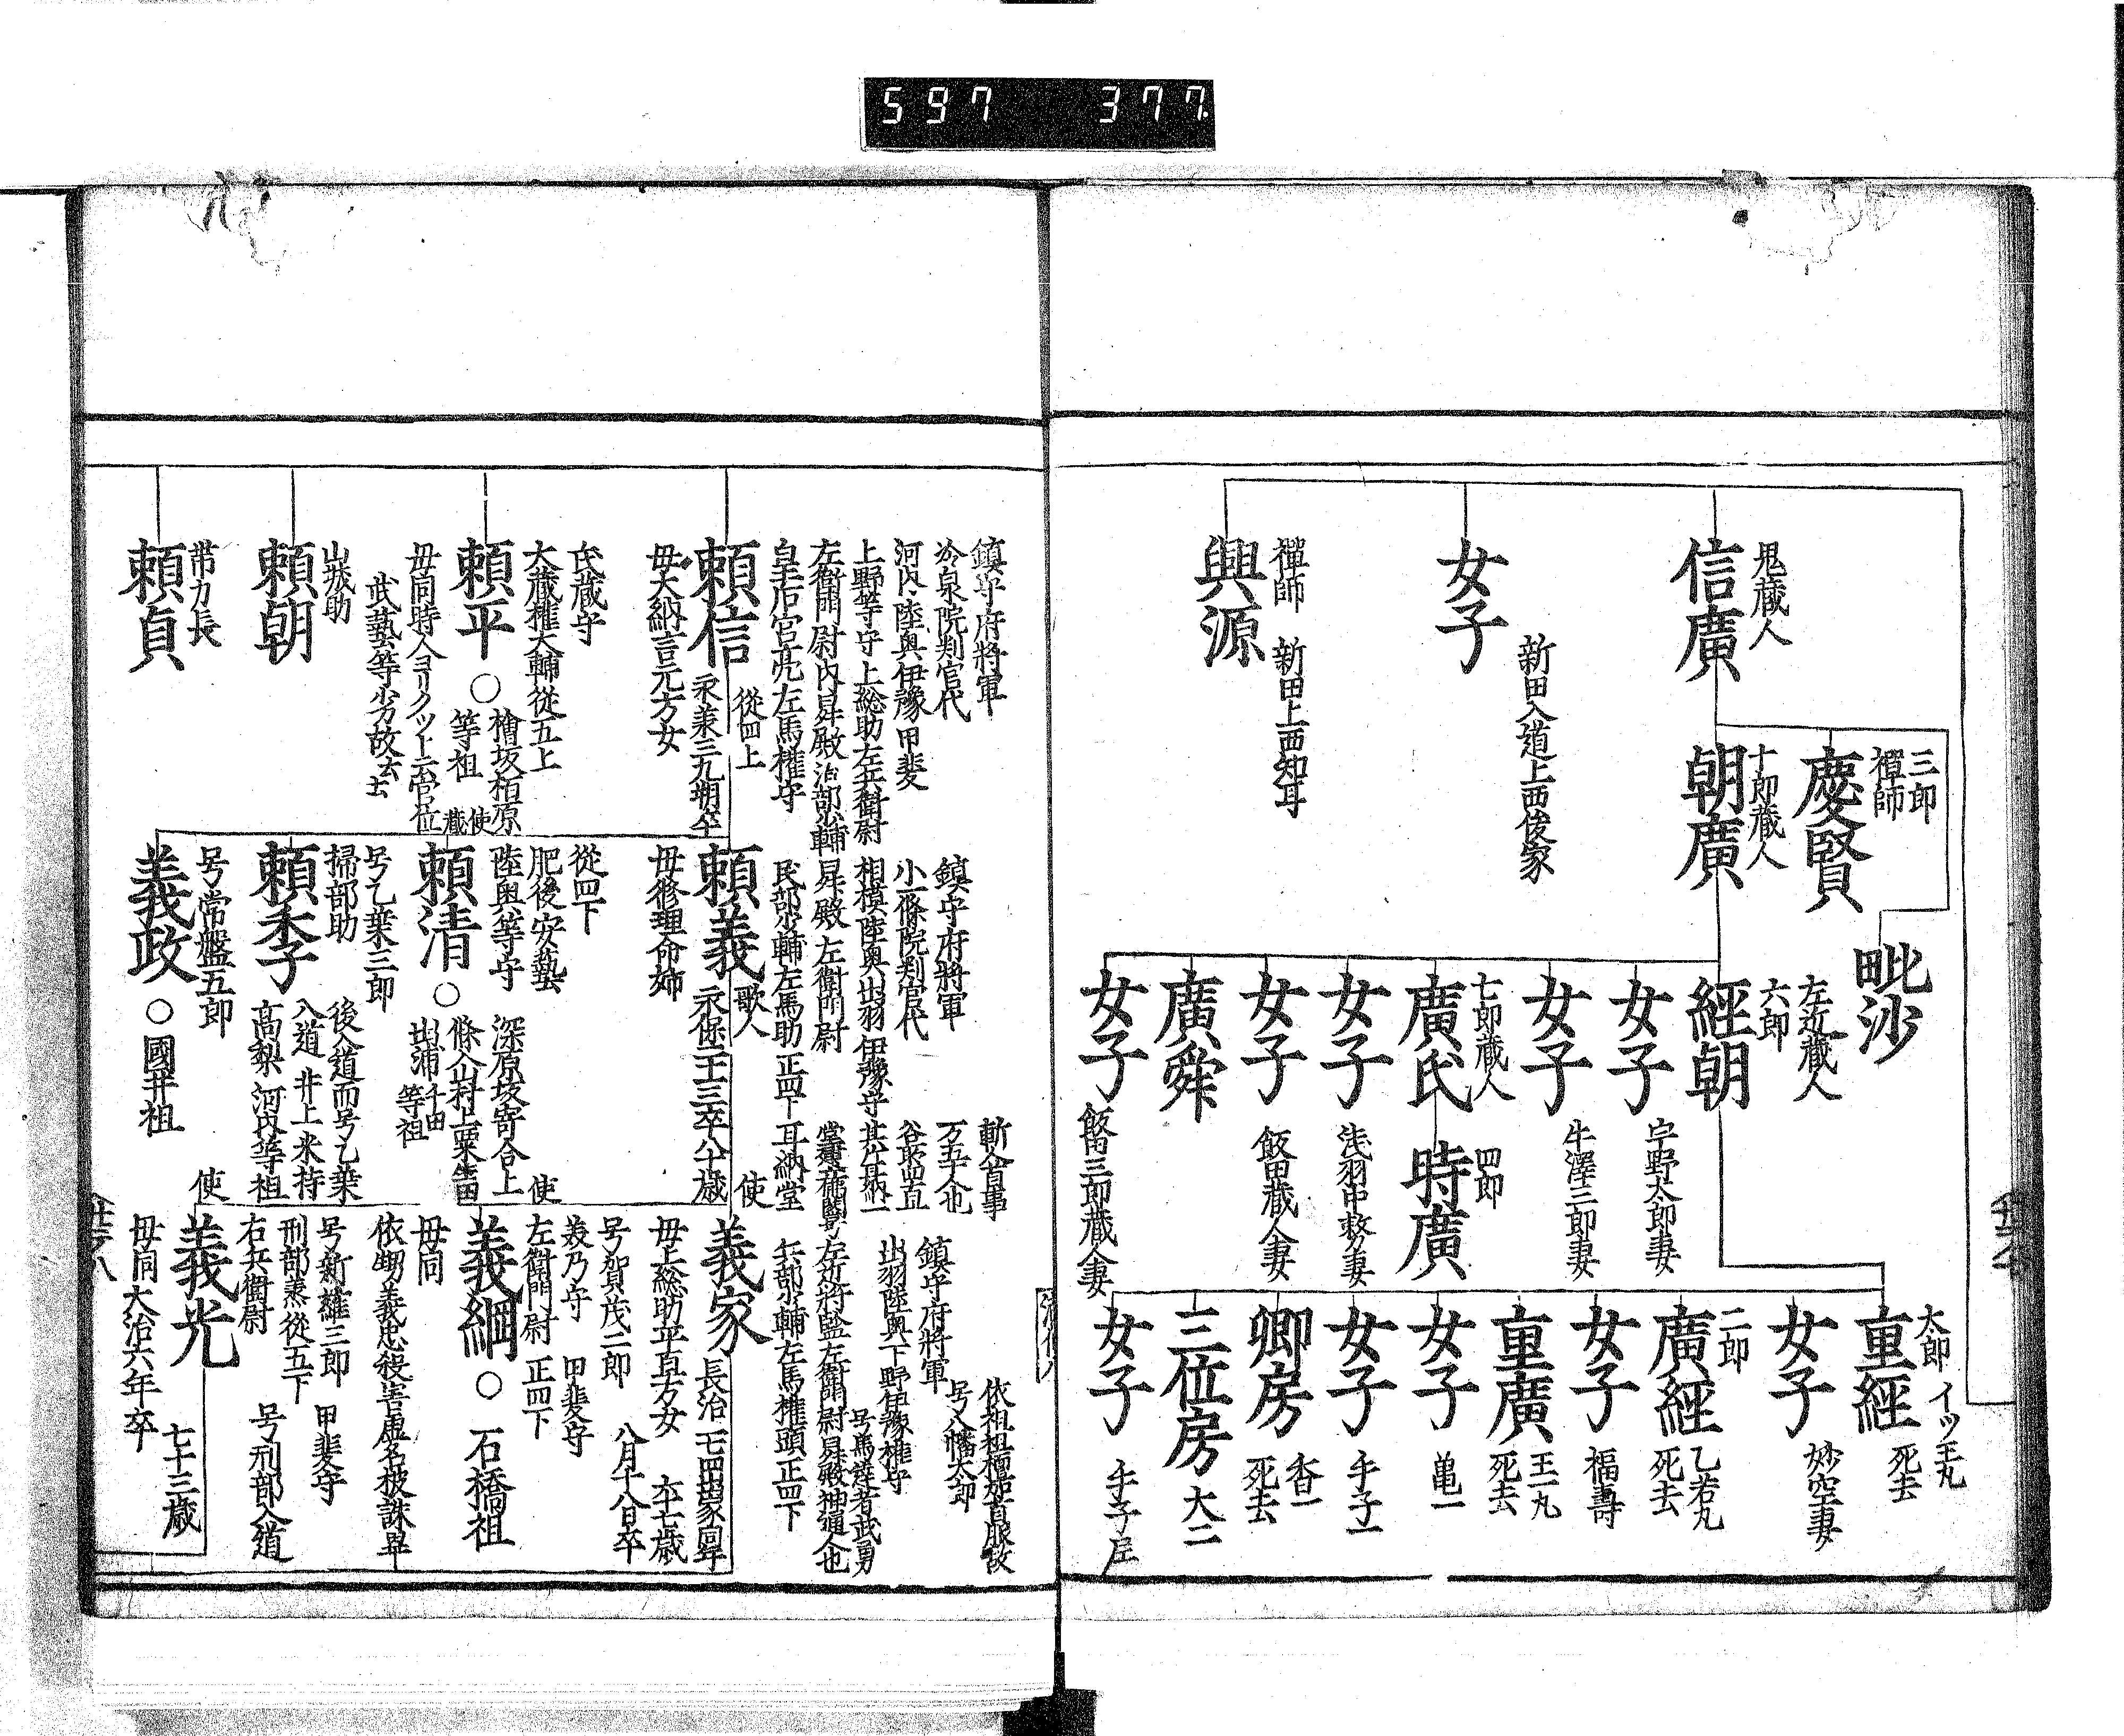 597 377
三郎
禪師
慶賢
毗沙
蔵人
信廣
十郎蔵人
朝廣
左近蔵人
六郎
經朝
太郎 イツ王丸
重經 死去
女子 妙空妻
二郎
廣經 乙若丸
死去
女子 福壽
重廣 王一丸
死去
女子 亀一
女子 手子一
卿房
死去
三位房 大二
女子
女子 宇野太郎妻
女子 牛澤三郎妻
七郎蔵人
廣氏
四郎
時廣
女子
女子 飯田蔵人妻
廣舜
女子 飯田三郎蔵人妻
新田入道上西後家
女子
禪師 新田上西知耳
興源
鎮守府將軍
冷泉院判官代
河内陸奥伊豫甲斐
上野等守上総助左兵衛尉
左衛門尉内昇殿治部少輔
皇后宮亮左馬權守
頼信 從四上
永兼三九朔卒
母大納言元方女
鎮守府將軍
小一條院判官代
相模陸奥出羽伊豫守
昇殿左衛門尉
民部少輔左馬助正四下
頼義 歌人
永保二壬三卒八十歳
母修理命婦
斬人首事
万五千人也
耳納堂
鎮守府將軍
号八幡太郎
出羽陸奥下野伊豫權守
左近將監左衛門尉昇殿神通人也
兵部少輔左馬權頭正四下
使
義家
母上総助平直方女
号賀茂二郎 八月十八日卒
美乃守 甲斐守
左衛門尉 正四下
使
義綱 ○ 石橋祖
母同
依甥義忠殺害虚名被誅畢
号新羅三郎 甲斐守
刑部丞從五下
右兵衛尉 号刑部入道
使
義光
母同大治六年卒
七十三歳
大蔵權大輔從五上
頼平 ○ 檜坂柏原
等祖
母同時人ヨリクツト云官位
武藝等劣故云云
從四下
肥後安藝
陸奥等守
使
蔵
頼清 ○
等祖
号乙葉三郎
掃部助
頼季
後入道而号乙葉
入道井上米持
高梨河内等祖
号常盤五郎
義政 ○ 國井祖
山城助
頼朝
帯刀長
頼貞